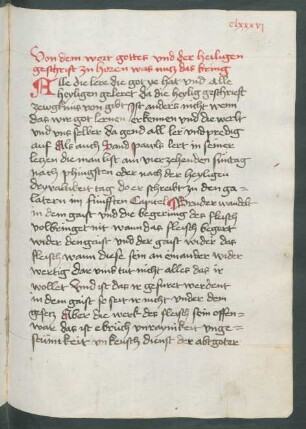 clxxxvi
Von dem wort gottes und der heiligen
geschrift zu horen was nucz das bring
Alle die lere die got ye hat und alle
heyligen geleret da die heylig geschriefft
zewgknus von gibt Ist anders nicht wenn
das wir got lernen erkennen und die werlt
und uns selber da gend all ler und predig
auf Als auch Sand Pauls lert in seiner
leczen die man list am vierzehenden suntag
nach pfingsten oder nach der heyligen
dryvaltikeit tag do er schreibt zu den ga-
latern im funfften Capitel Bruder wandelt
in dem gaist und die begerung des fleisch
volbringet nit wann das fleisch begert
wider den gaist und der gaist wider das
fleisch wann diese sein an einander wider
wertig dar umb tut nicht alles das ir
wollet Und ist das ir gefuret werdent
in dem gaist so seit ir nicht under dem
gesecz Aber die werk des fleisch sein offen-
war das ist ebruch unraynikeit unge-
stumikeit unkeusch dienst der abtgoter